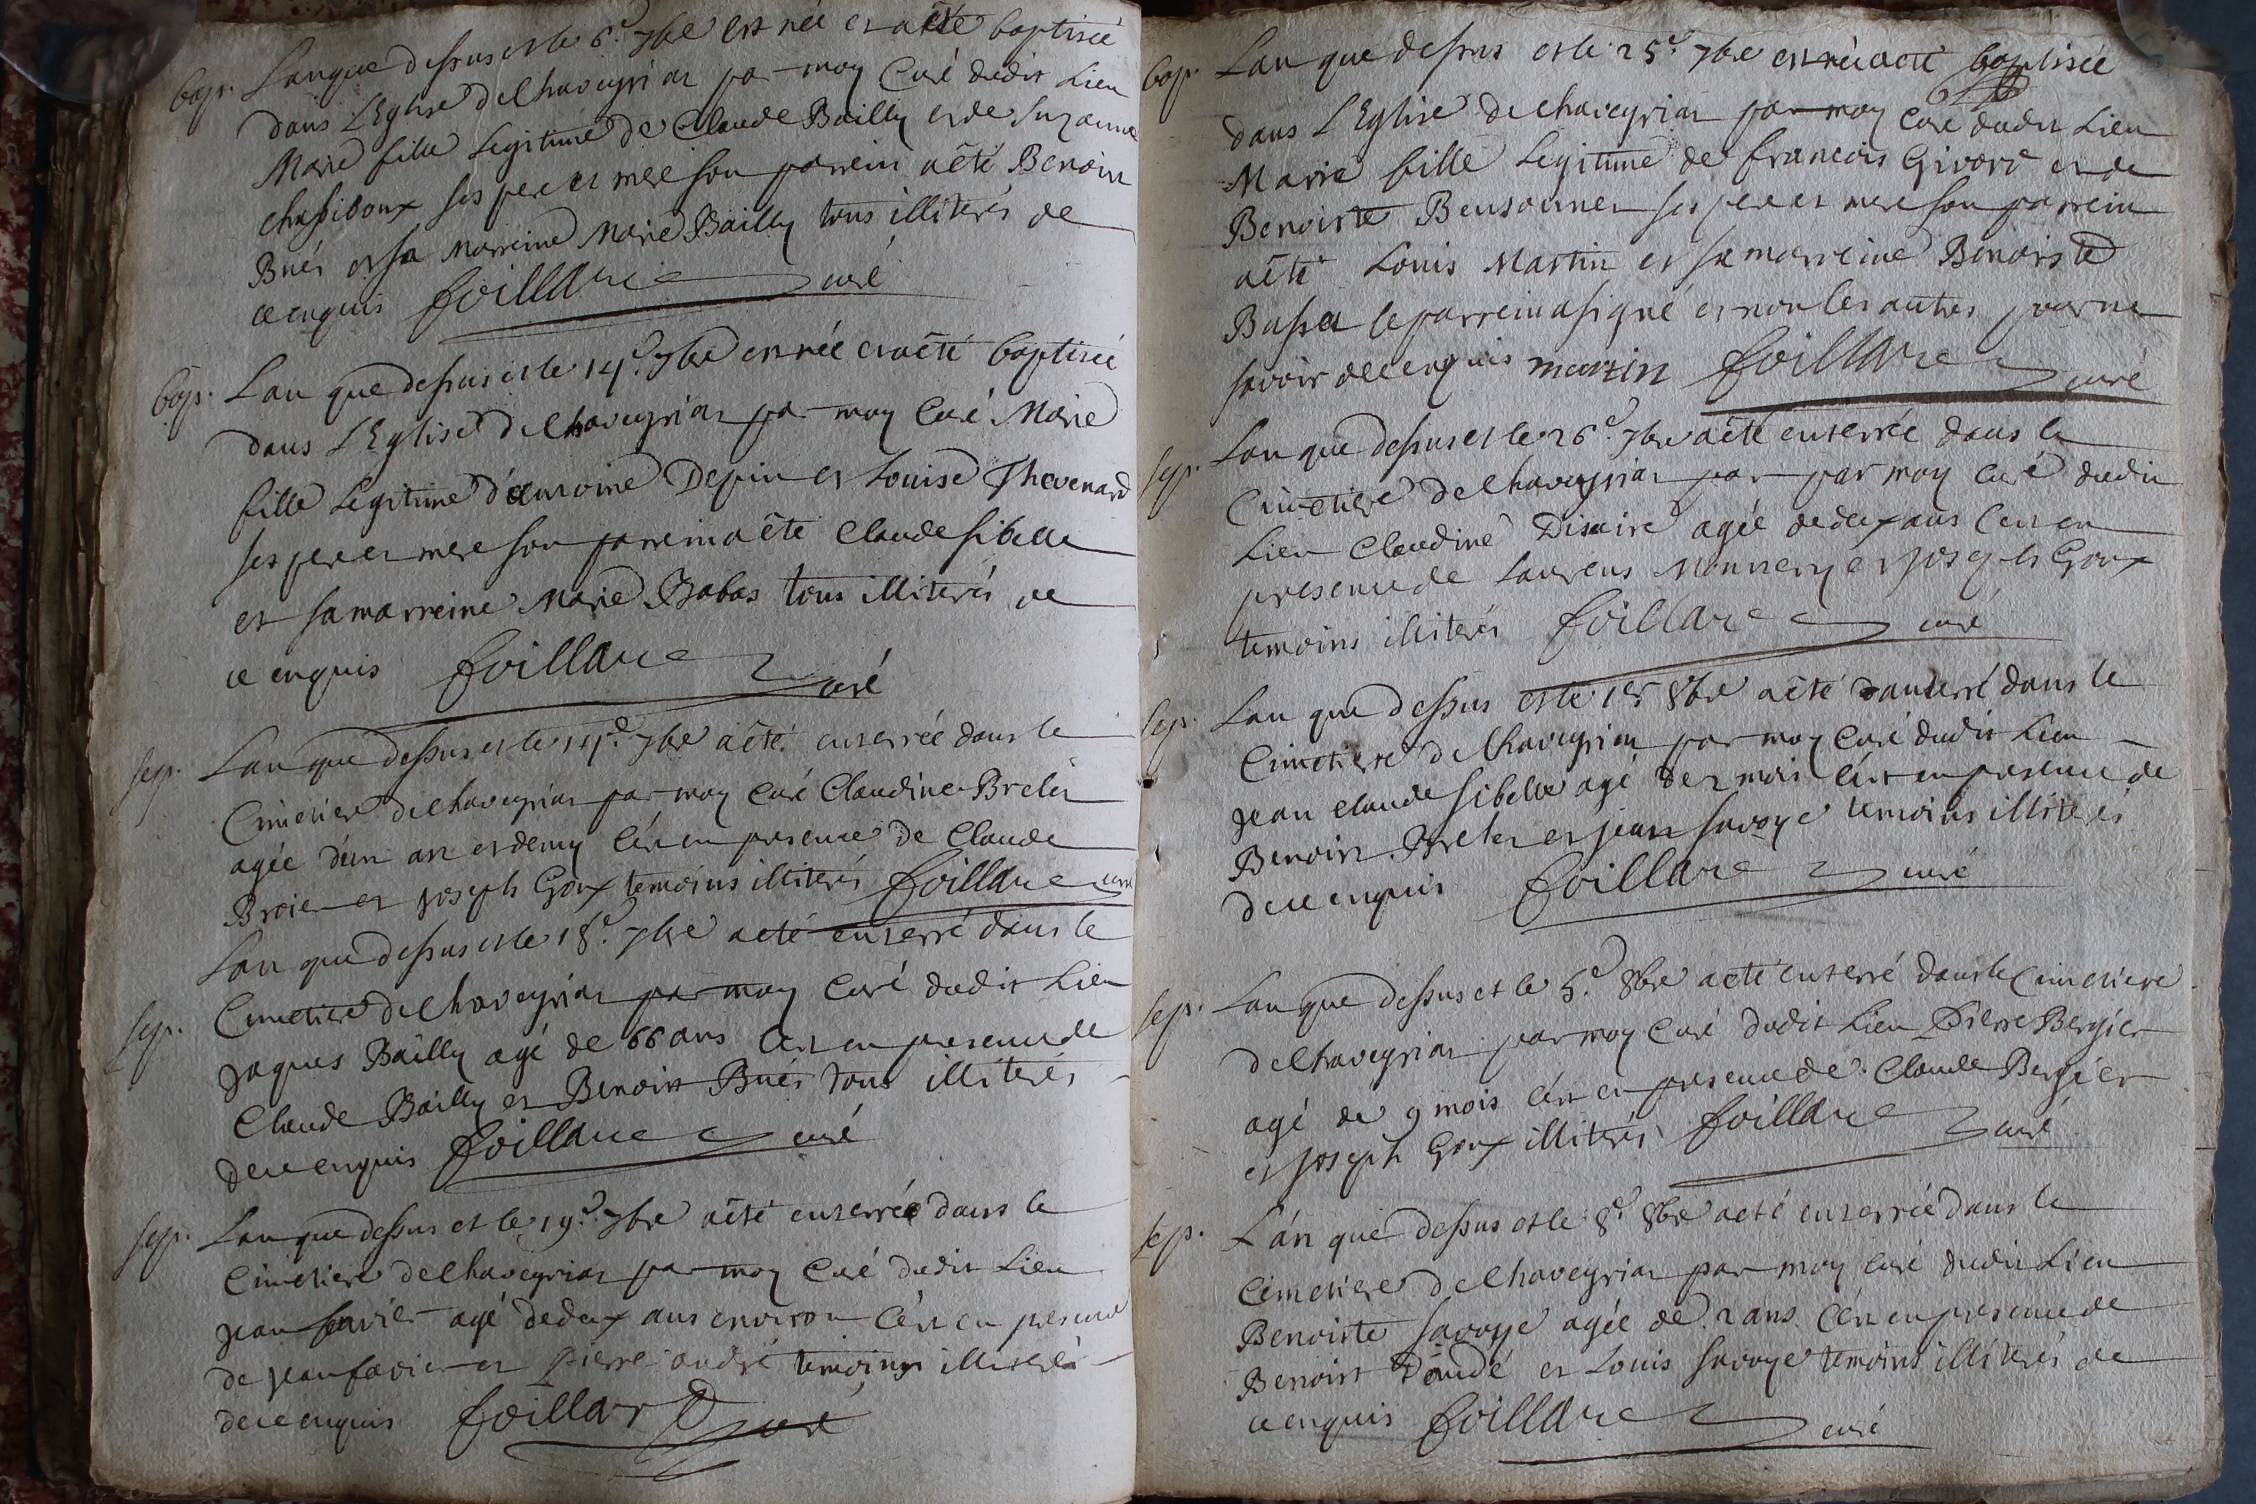 bap. L'an que dessus et le 6.e 7bre est née et a été baptisée
dans L'Eglise de Chaveyriat par moy Curé dudit Lieu
Marie fille Legitime de Claude Bailly et de Suzanne
Chassiboux ses pere et mere son parrein a êté Benoist
Buès et sa Marreine Marie Bailly tous illiterés de
ce enquis foillard curé
bap. L'an que dessus et le 14.e 7bre est née et a êté baptisée
dans L'Eglise de Chaveyriat par moy Curé Marie
fille Legitime d'antoine Depin et Louise Thevenard
ses pere et mere son parrein a êté Claude sibelle
et sa marreine Marie Babas tous illiterés de
ce enquis foillard curé
sep. L'an que dessus et le 14.e 7bre a êté enterrée dans le
Cimetiere de Chaveyriat par moy Curé Claudine Brelet
agée d'un an et demy C'est en presence de Claude
Broier et joseph Goux temoins illiterés foillard curé
L'an que dessus et le 18.e 7bre a eté enterré dans le
sep. Cimetiere de Chaveyriat par moy Curé dudit Lieu
jaques Bailly agé de 66 ans C'est en presence de
Claude Bailly et Benoist Buès tous illiterés
de ce enquis foillard curé
sep. L'an que dessus et le 19.e 7bre a êté enterrée dans le
Cimetiere de Chaveyriat par moy Curé dudit Lieu
jean favier agé de deux ans environ C'est en presence
de jean favier et pierre andré temoins illiterés
de ce enquis foillard curé
bap. L'an que dessus et le 25.e 7bre est née a eté baptisée
dans L'Eglise de Chaveyriat par moy Curé dudit Lieu
Marie fille Legitime de francois Givord et de
Benoiste Bensonnet ses pere et mere son parrein
a êté Louis Martin et sa marreine Benoiste
Bassa le parrein a signé et non les autres pour ne
savoir de ce enquis martin foillard curé
sep. L'an que dessus et le 26.e 7bre a êté enterrée dans le
Cimetiere de Chaveyriat par par moy Curé dudit
Lieu Claudine Disaire agée de deux ans C'est en
presence de Laurens Monnery et joseph Goux
temoins illiterés foillard curé
sep. L'an que dessus et le 1er 8bre a êté enterré dans le
Cimetiere de Chaveyriat par moy Curé dudit Lieu
jean Claude sibelle agé de 2 mois C'est en presence de
Benoist Brelet et jean savoye temoins illiterés
de ce enquis foillard curé
sep. L'an que dessus et le 5.e 8bre a eté enterré dans le Cimetiere
de Chaveyriat par moy Curé dudit Lieu Pierre Bergier
agé de 9 mois C'est en presence de Claude Bergier
et joseph Goux illiterés foillard curé
sep. L'an que dessus et le 8.e 8bre a eté enterrée dans le
Cimetiere de Chaveyriat par moy Curé dudit Lieu
Benoiste savoye agée de 2 ans C'est en presence de
Benoist Daudé et Louis savoye temoins illiterés de
ce enquis foillard curé